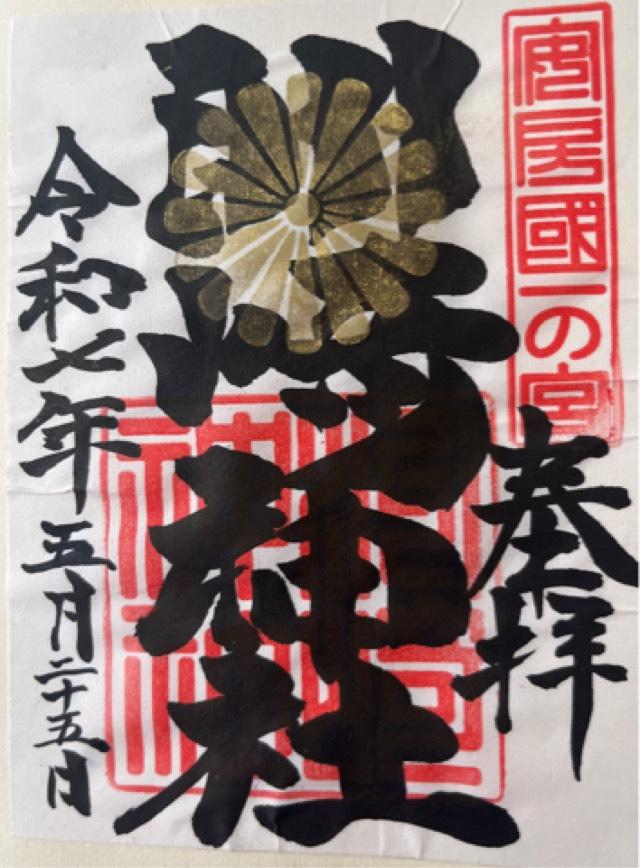 安房國一の宮
奉拝
洲崎神社
令和七年五月二十五日